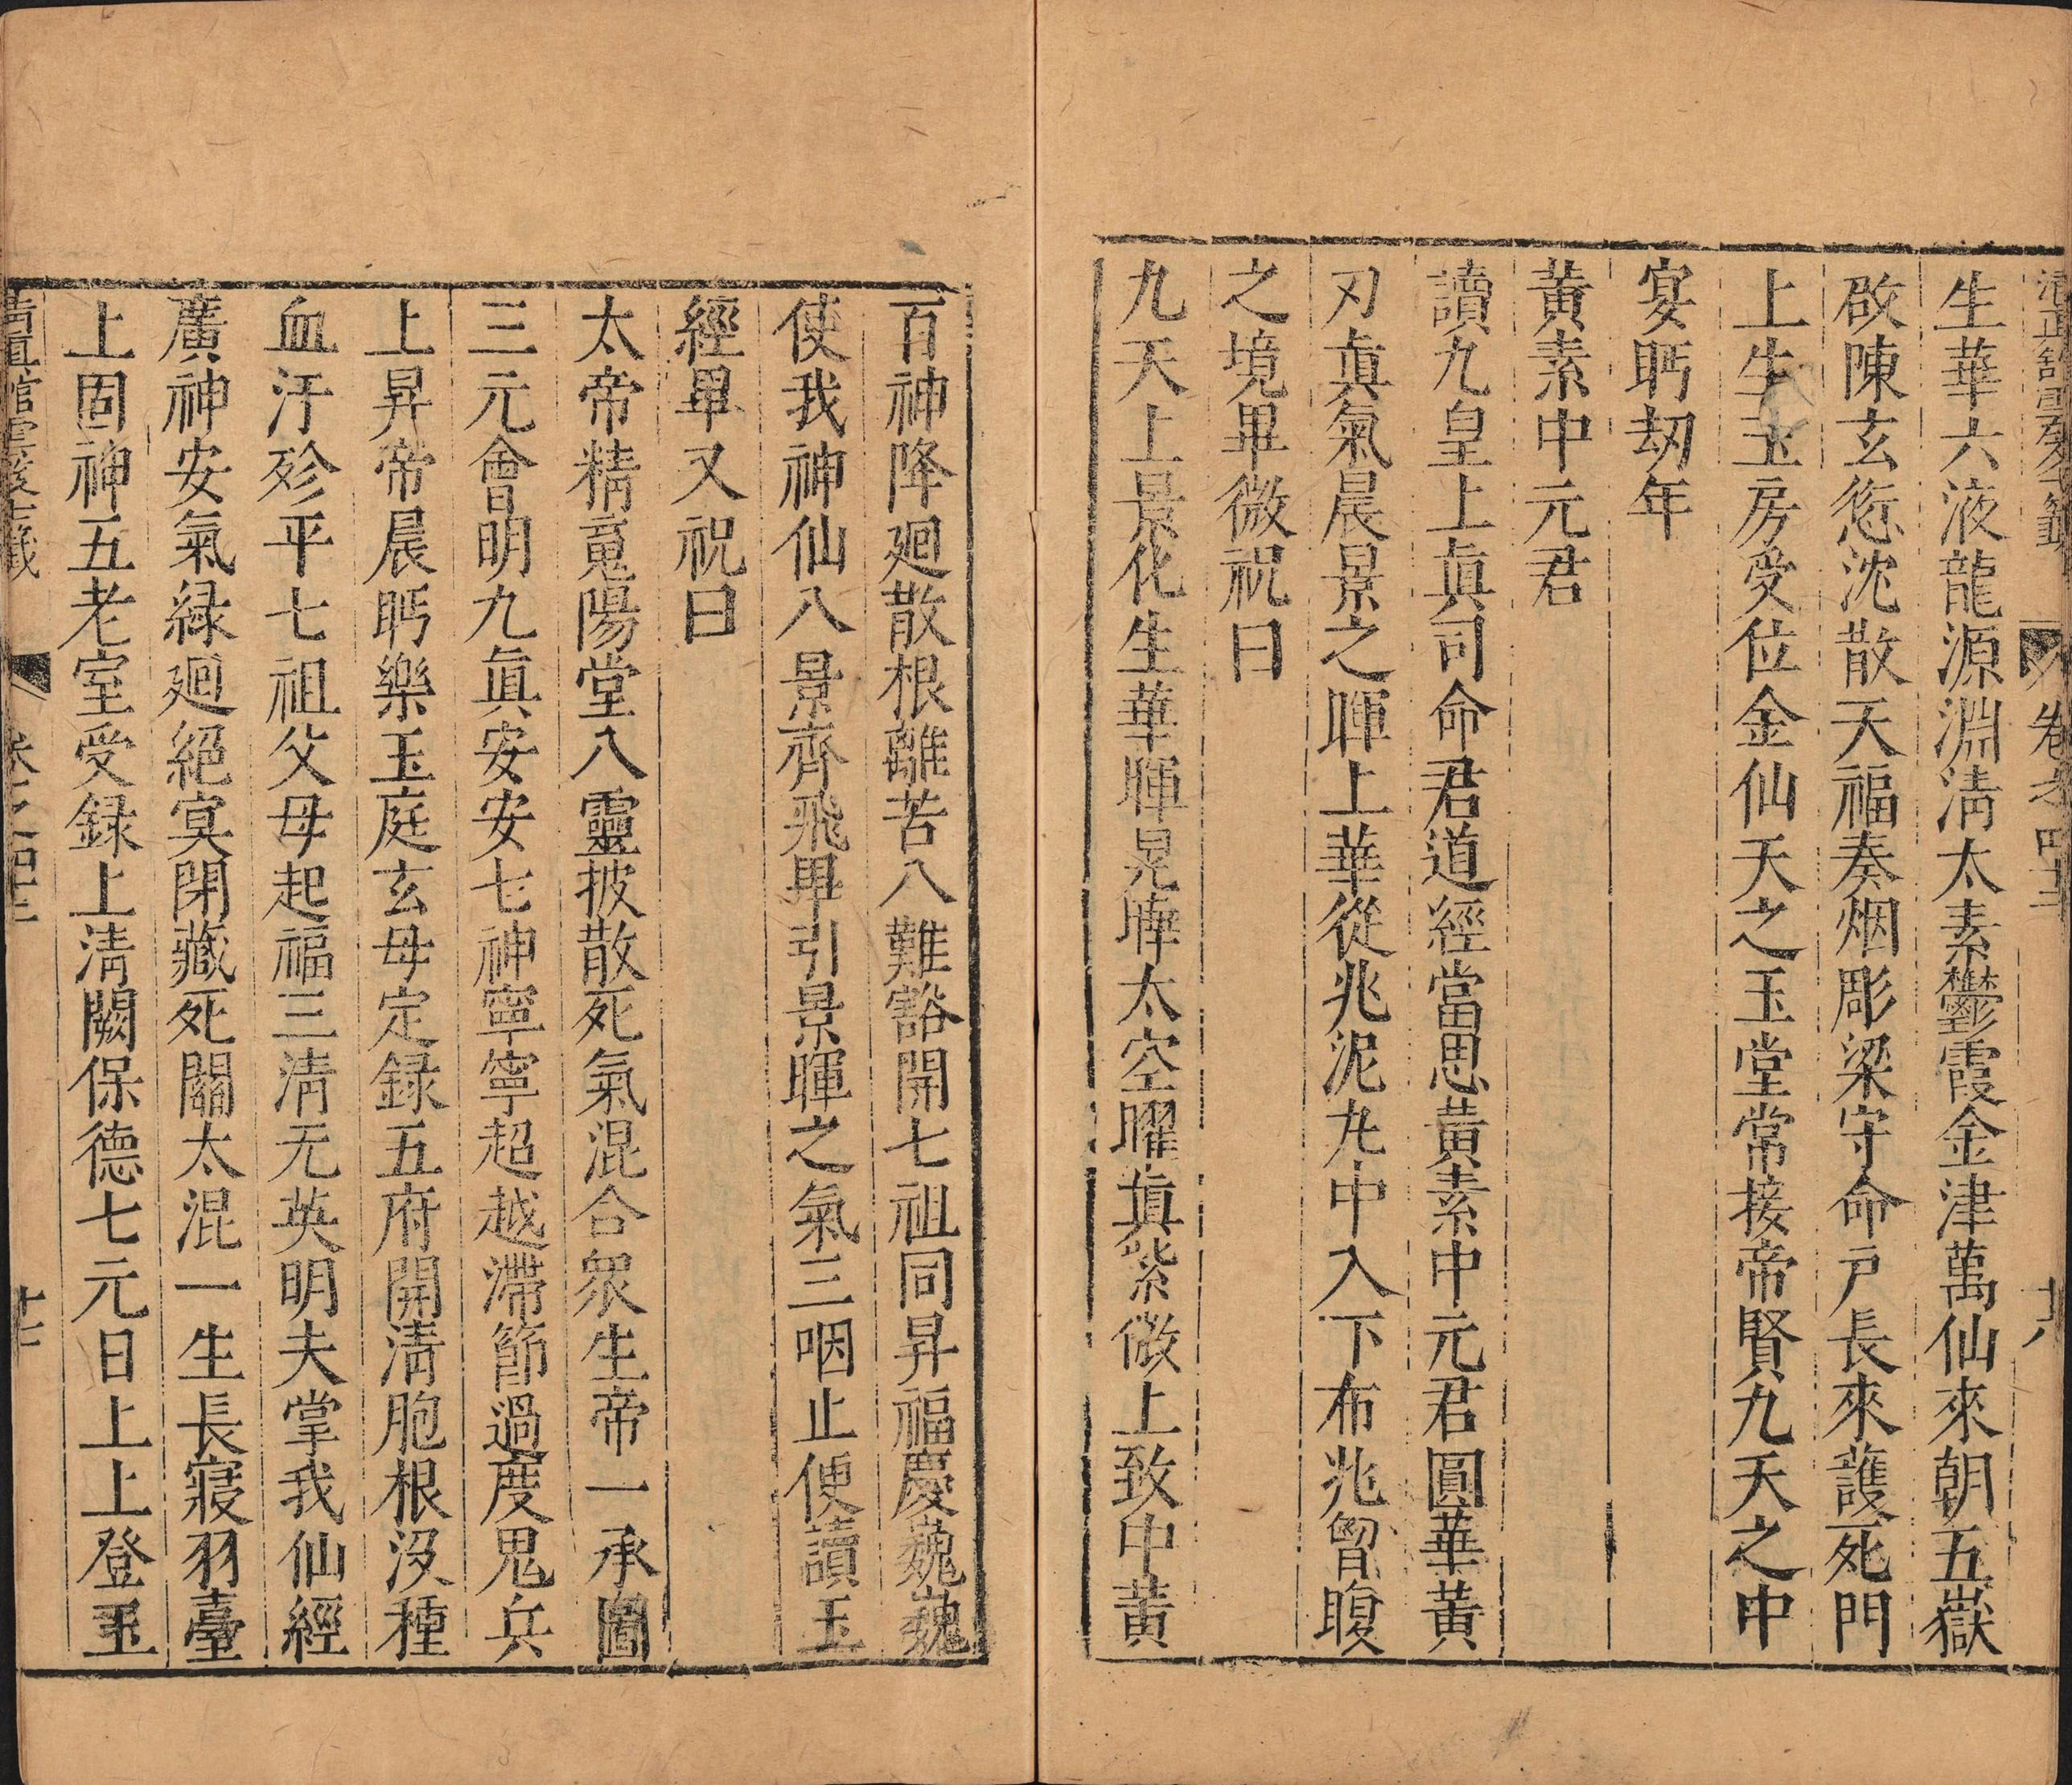 生華六液龍源淵清太素鬱霞金津萬仙來朝五嶽
啟陳玄愆沈散天福奏烟彫梁守命戸長來護死門
上生玉房受位金仙天之玉堂常接帝賢九天之中
宴眄刼年
黃素中元君
讀九皇上眞司命君道經當思黃素中元君圓華黃
刃眞氣晨景之暉上華從兆泥九中入下布兆胷腹
之境畢微祝曰
九天上景化生華暉晃曄太空曜眞紫微上致中黃
百神降廻散根離苦八難豁開七祖同昇福慶巍巍
使我神仙八景齊飛畢引景暉之氣三咽止便讀玉
經畢又祝曰
太帝精䰟陽堂八靈披散死氣混合眾生帝一承圖
三元會明九眞安安七神寧寧超越滯節過度鬼兵
上昇帝晨眄樂玉庭玄母定録五府開清胞根沒種
血汙殄平七祖父母起福三清无英明夫掌我仙經
廣神安氣緑廻絕冥閉藏死關太混一生長寢羽臺
上固神五老室受録上清闕保德七元日上上登玉